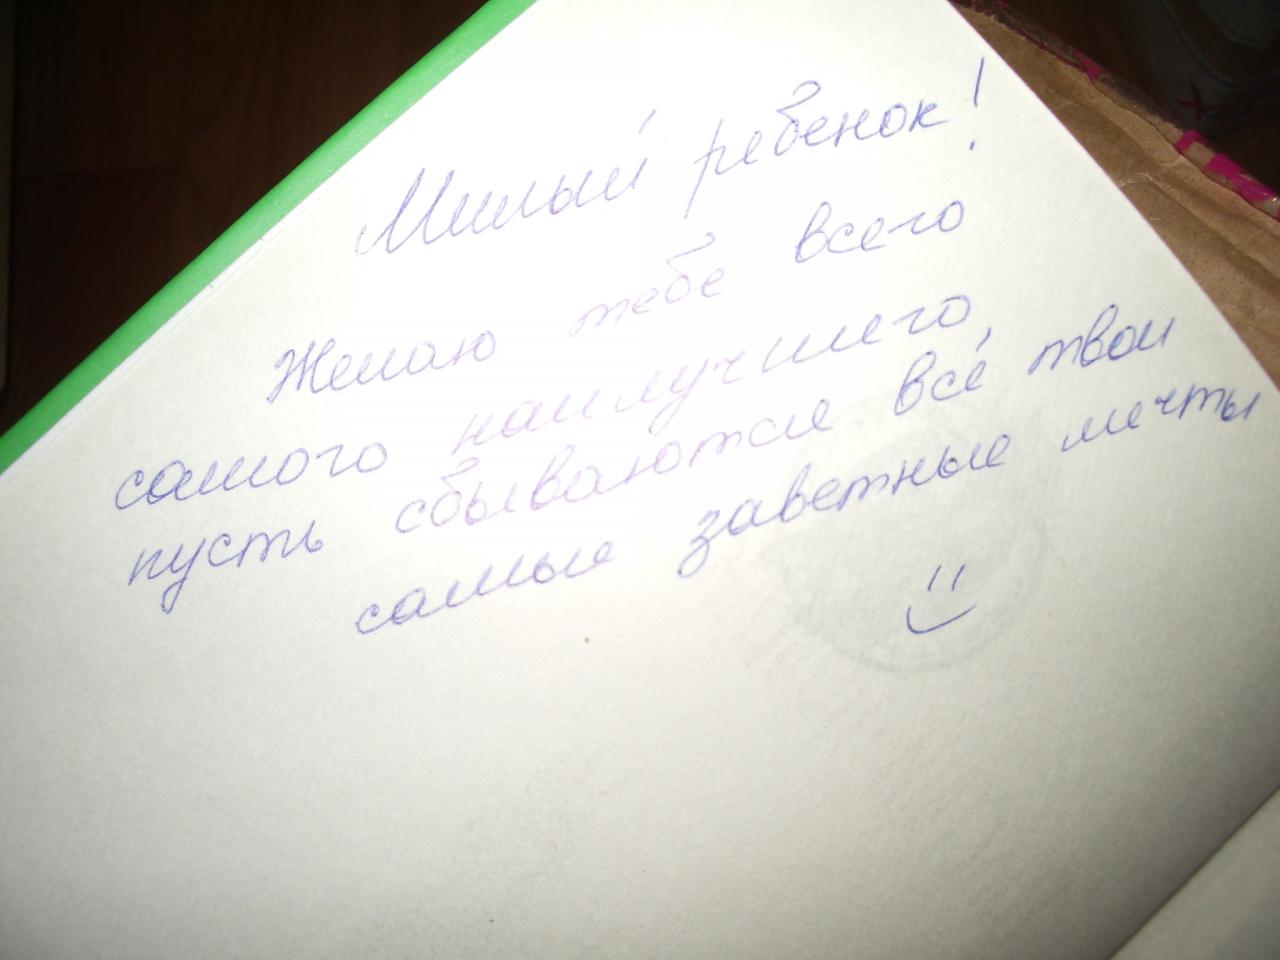 Милый ребенок!
Желаю тебе всего
самого наилучшего,
пусть сбываются все твои
самые заветные мечты